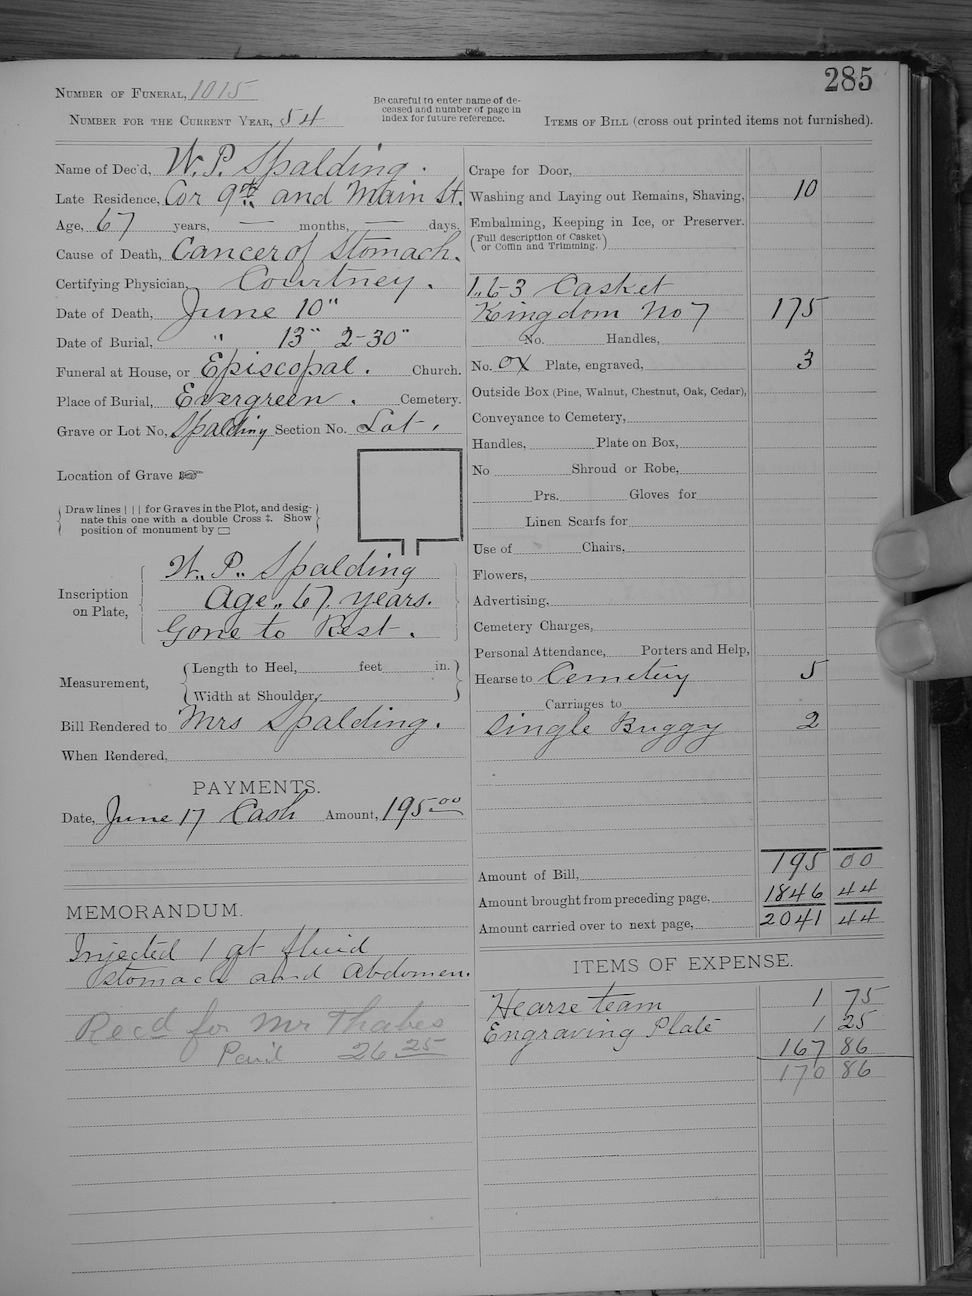 285
NUMBER OF FUNERAL, 1015
NUMBER FOR THE CURRENT YEAR, 54
Be careful to enter name of de-
ceased and number of page in
index for future reference.
ITEMS OF BILL (cross out printed items not furnished).
Name of Dec'd, W. P. Spalding.
Late Residence, Cor 9th and Main St.
Age, 67 years, — months, — days.
Cause of Death, Cancer of Stomach.
Certifying Physician, Courtney.
Date of Death, June 10"
Date of Burial, " 13" 2-30"
Funeral at House, or Episcopal. Church.
Place of Burial, Evergreen. Cemetery.
Grave or Lot No, Spalding Section No. Lot.
Location of Grave ☞
Draw lines | | | for Graves in the Plot, and desig-
nate this one with a double Cross ‡. Show
position of monument by ▭
Inscription
on Plate,
W. P. Spalding
Age. 67 years.
Gone to Rest.
Measurement,
Length to Heel, feet in.
Width at Shoulder,
Bill Rendered to Mrs Spalding.
When Rendered,
PAYMENTS.
Date, June 17 Cash Amount, 195 00
MEMORANDUM.
Injected 1 qt fluid
Stomach and Abdomen.
Recd for Mr Thabes
Paid 26 25
Crape for Door,
Washing and Laying out Remains, Shaving, 10
Embalming, Keeping in Ice, or Preserver.
(Full description of Casket
or Coffin and Trimming.)
1. 6-3 Casket
Kingdom No 7 175
No. Handles,
No. OX Plate, engraved, 3
Outside Box (Pine, Walnut, Chestnut, Oak, Cedar),
Conveyance to Cemetery,
Handles, Plate on Box,
No Shroud or Robe,
Prs. Gloves for
Linen Scarfs for
Use of Chairs,
Flowers,
Advertising,
Cemetery Charges,
Personal Attendance, Porters and Help,
Hearse to Cemetery 5
Carriages to
Single Buggy 2
195 00
Amount of Bill,
Amount brought from preceding page, 1846 44
Amount carried over to next page, 2041 44
ITEMS OF EXPENSE.
Hearse team 1 75
Engraving Plate 1 25
167 86
170 86